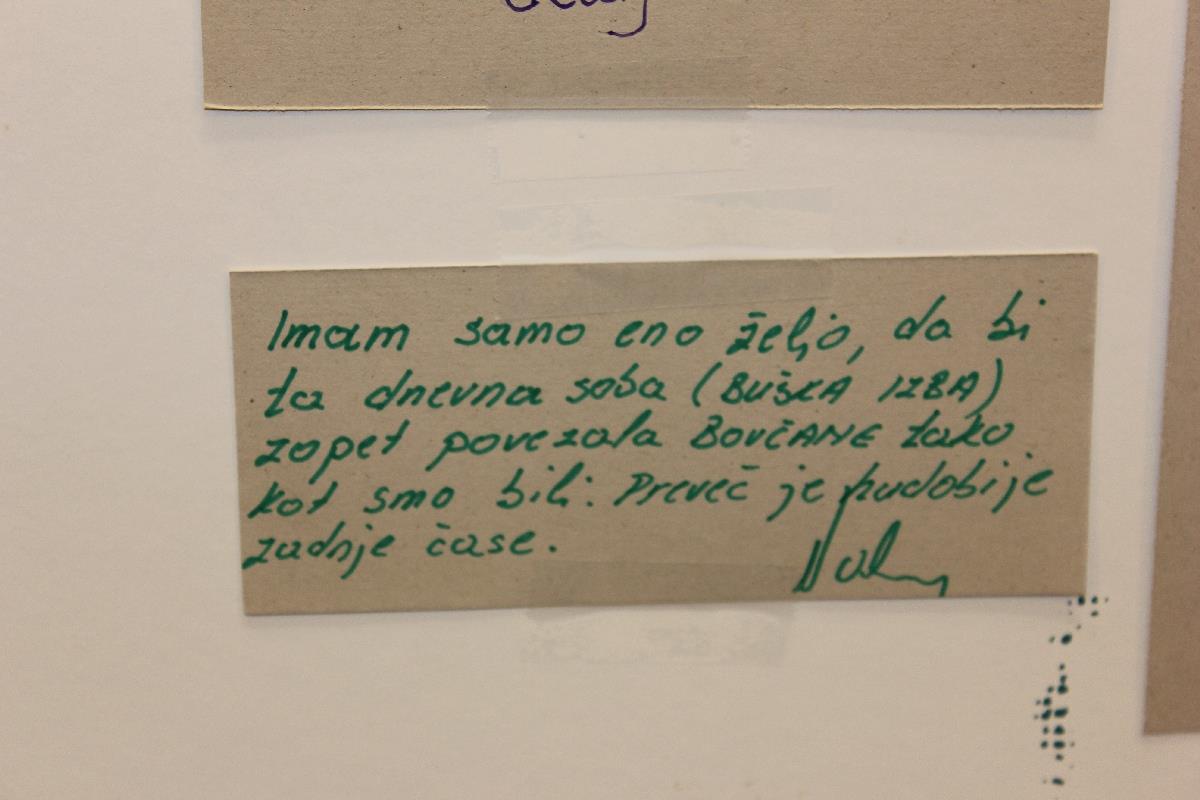 Imam samo eno željo, da bi
ta dnevna soba (BUŠKA IZBA)
zopet povezala BOVČANE tako
kot smo bili. Preveč je hudobije
zadnje čase.